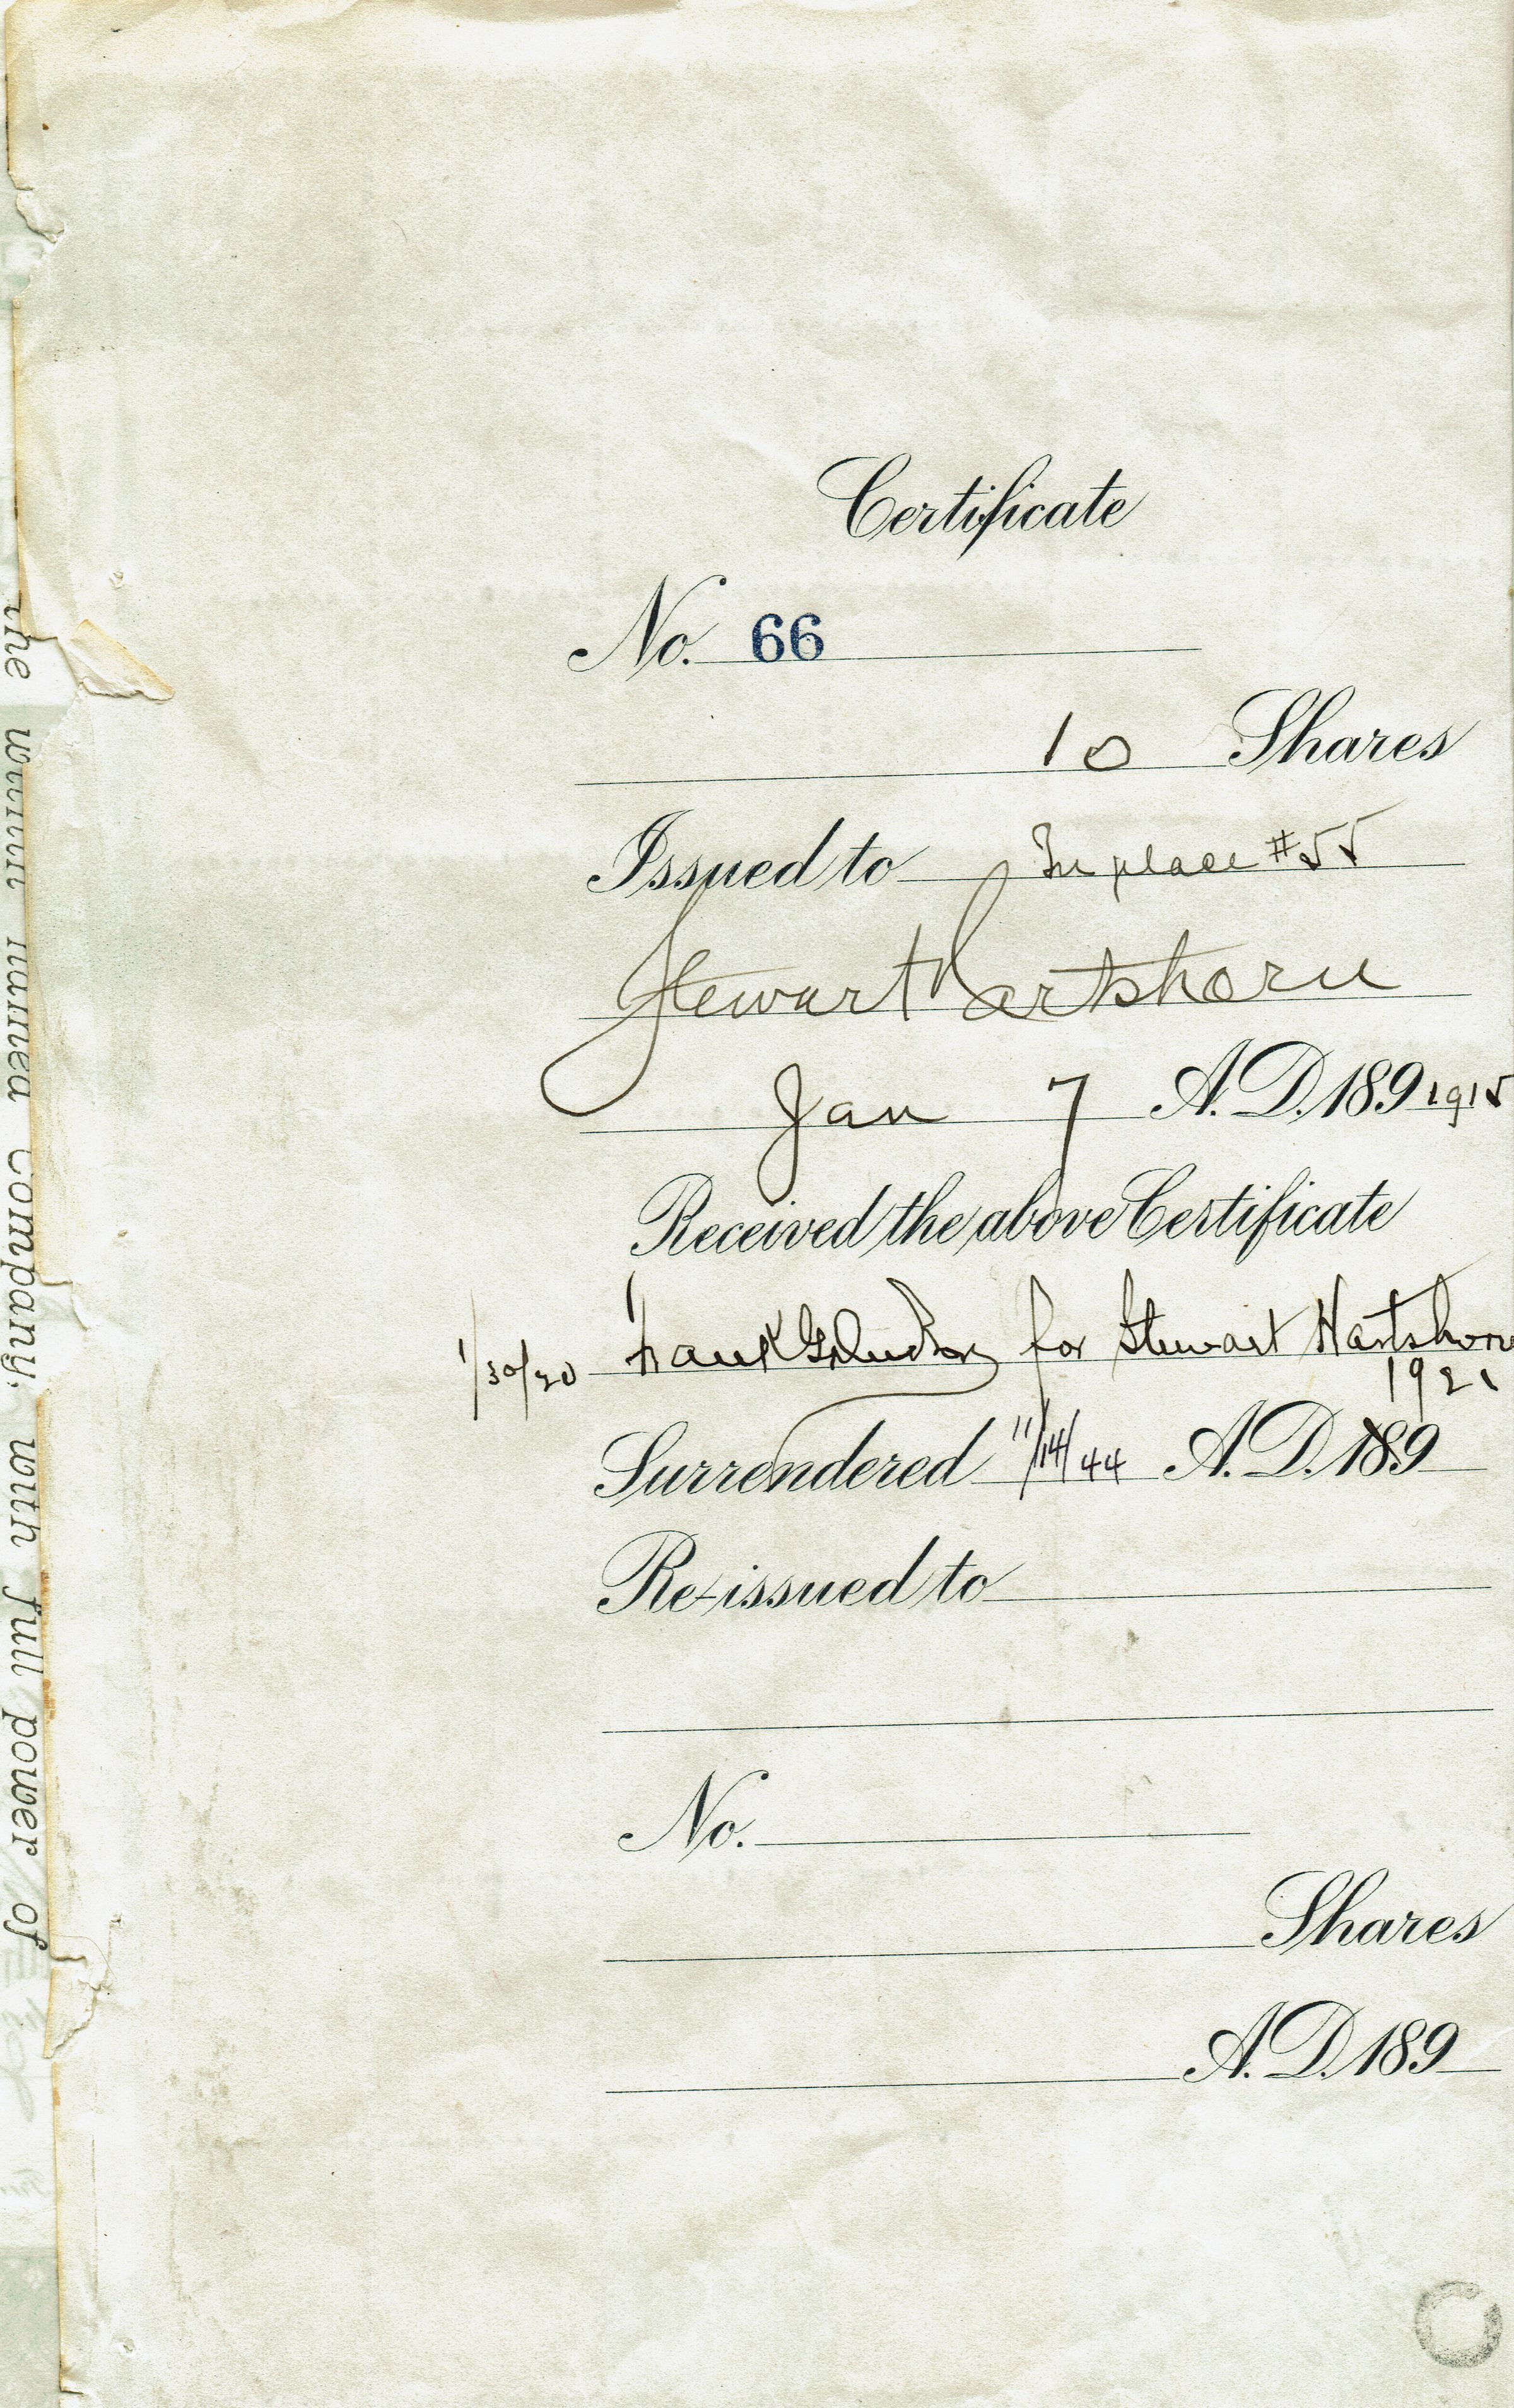 Certificate
No. 66
10 Shares
Issued to In place #55
Stewart Hartshorn
Jan 7 A.D. 189 1915
Received the above Certificate
1/30/20 Frank for Stewart Hartshorn
1921
Surrendered 11/14/44 A.D. 189
Re-issued to
No.
Shares
A.D. 189
the within named Company, with full power of